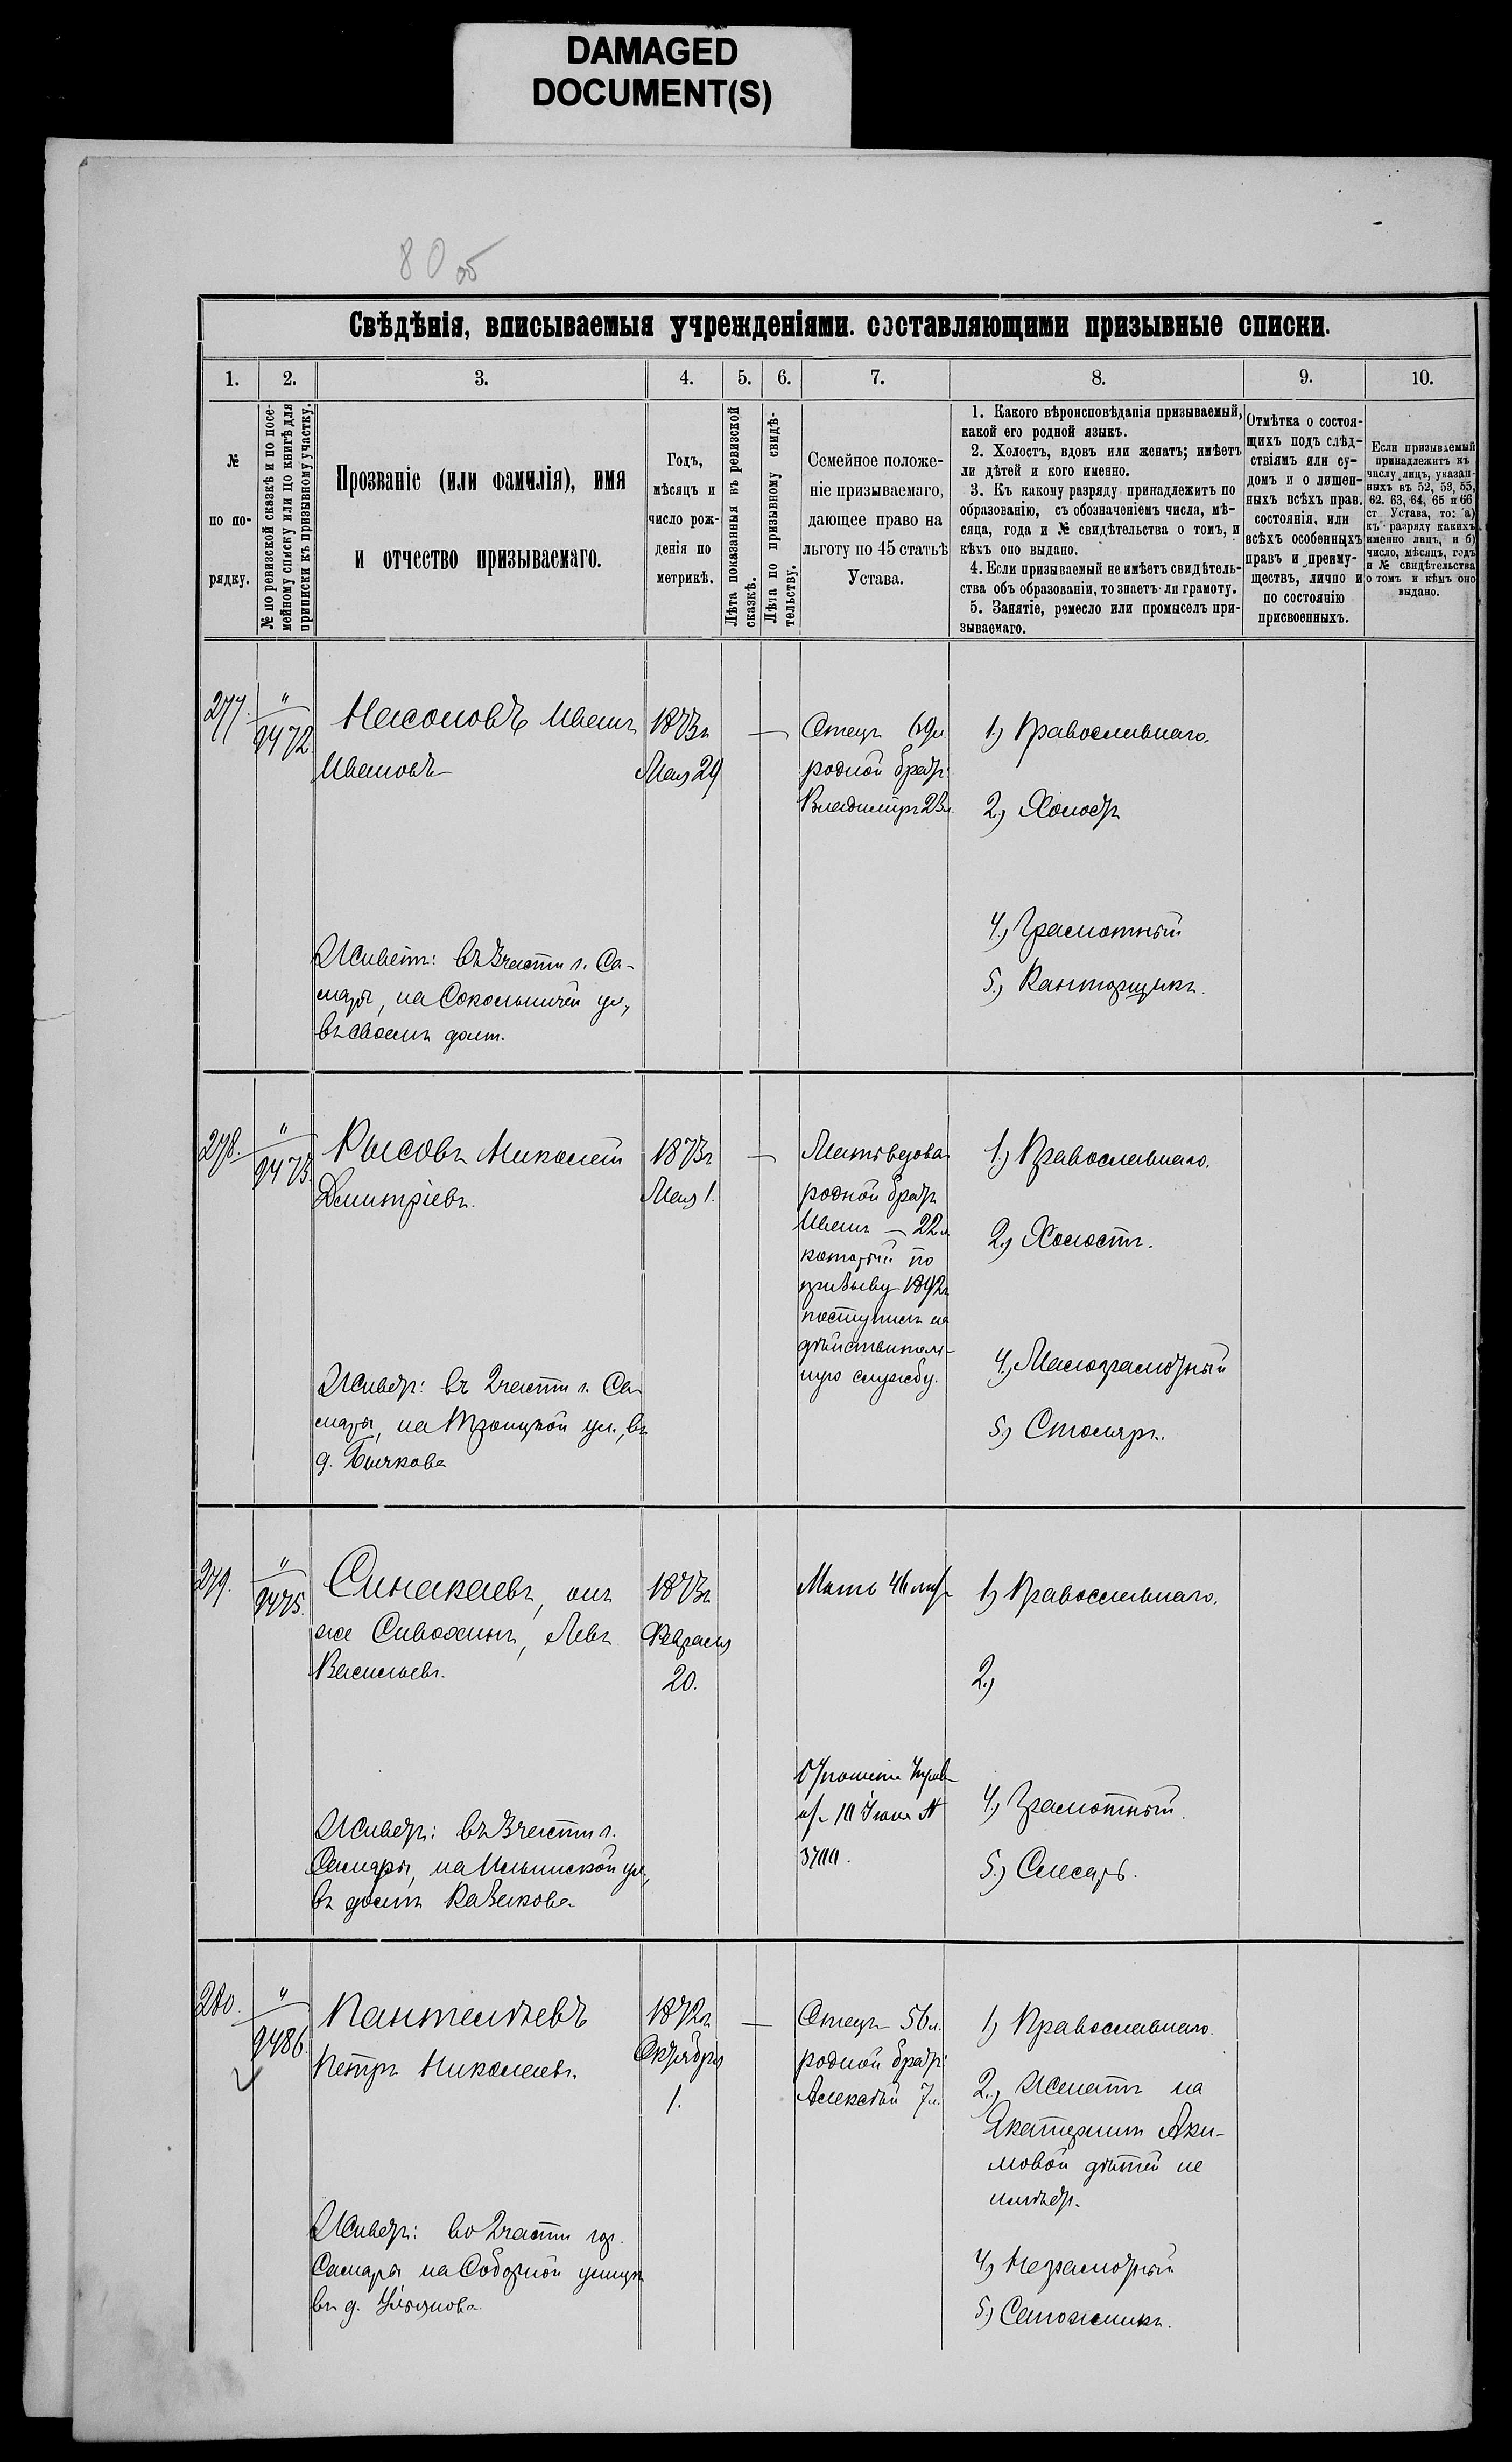 DAMAGED
DOCUMENT(S)
80 об
Свѣдѣнія, вписываемыя учрежденіями. составляющими призывные списки.
1. 2. 3. 4. 5. 6. 7. 8. 9. 10.
№
по по-
рядку.
№ по ревизской сказкѣ и по посе-
мейному списку или по книгѣ для
приписки къ призывному участку.
Прозваніе (или фамилія), имя
и отчество призываемаго.
Годъ,
мѣсяцъ и
число рож-
денія по
метрикѣ.
Лѣта показанныя въ ревизской
сказкѣ.
Лѣта по призывному свидѣ-
тельству.
Семейное положе-
ніе призываемаго,
дающее право на
льготу по 45 статьѣ
Устава.
1. Какого вѣроисповѣданія призываемый,
какой его родной языкъ.
2. Холостъ, вдовъ или женатъ; имѣетъ
ли дѣтей и кого именно.
3. Къ какому разряду принадлежитъ по
образованію, съ обозначеніемъ числа, мѣ-
сяца, года и № свидѣтельства о томъ, и
кѣмъ оно выдано.
4. Если призываемый не имѣетъ свидѣтель-
ства объ образованіи, то знаетъ ли грамоту.
5. Занятіе, ремесло или промыселъ при-
зываемаго.
Отмѣтка о состоя-
щихъ подъ слѣд-
ствіямъ или су-
домъ и о лишен-
ныхъ всѣхъ прав.
состоянія, или
всѣхъ особенныхъ
правъ и преиму-
ществъ, лично и
по состоянію
присвоенныхъ.
Если призываемый
принадлежитъ къ
числу лицъ, указан-
ныхъ въ 52, 53, 55,
62. 63, 64, 65 и 66
ст Устава, то: а)
къ разряду какихъ
именно лицъ, и б)
число, мѣсяцъ, годъ
и № свидѣтельства
о томъ и кѣмъ оно
выдано.
277.
"
9472
Насоновъ Иванъ
Ивановъ
1873г
Мая 29
—
Отецъ 69л
родной братъ
Владиміръ 23л.
1.) Православнаго.
2.) Холостъ
4.) Грамотный
5.) Канторщикъ.
Живетъ: въ 3 части г. Са-
мары, на Сокольничей ул,
въ своемъ домѣ.
278.
"
9473.
Рысовъ Николай
Дмитріевъ.
1873г
Мая 1.
—
Мать вдова
родной братъ
Иванъ — 22л
который по
призыву 1892г
поступилъ на
дѣйствитель-
ную службу.
1.) Православнаго.
2.) Холостъ.
4.) Малограмотный
5.) Столяръ.
Живетъ: въ 2 части г. Са
мары, на Троицкой ул., въ
д. Бычкова
279.
"
9475.
Синакаевъ, онъ
же Сивохинъ, Левъ
Васильевъ.
1873г
Февраля
20.
Мать 46 лѣтъ
1) Православнаго.
2.)
10 Іюня №
3700.
4.) Грамотный.
5.) Слесарь.
Живетъ: въ 3 части г.
Самары, на Ильинской ул,
въ домѣ Казакова
280.
"
9486.
Пантелѣевъ
Петръ Николаевъ.
1872г
Октября
1.
—
Отецъ 56л.
родной братъ:
Алексѣй 7л.
1) Православнаго.
2.) Женатъ на
Екатеринѣ Аки-
мовой дѣтей не
имѣетъ.
4) Неграмотный
5.) Сапожникъ.
Живетъ: во 2 части гор.
Самары на Соборной улицѣ
въ д.